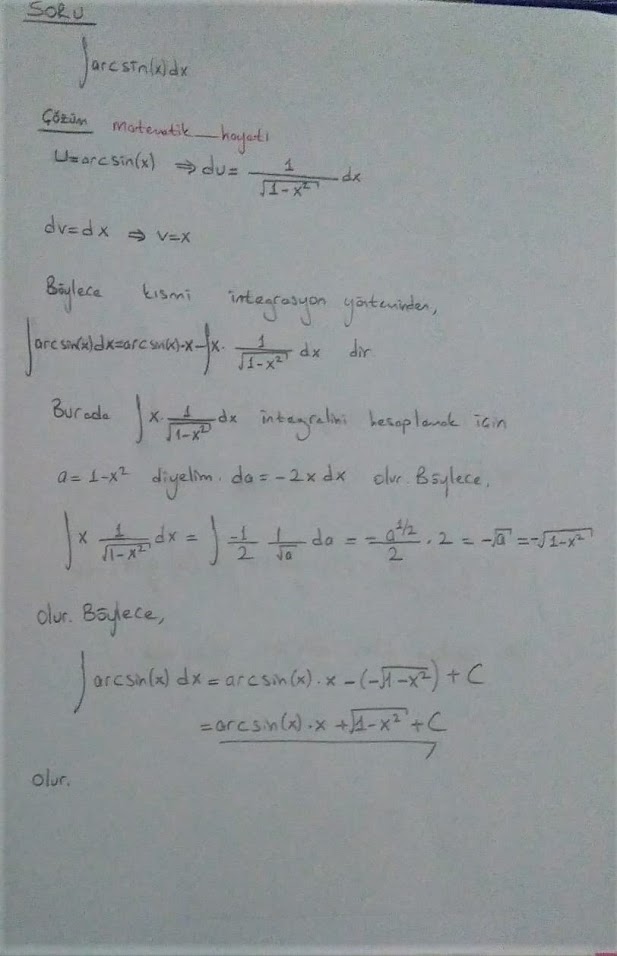 SORU
∫arcsin(x)dx
Çözüm matematik_hayatı
U=arcsin(x) ⇒ du= 1/√(1-x²) dx
dv=dx ⇒ v=x
Böylece kısmi integrasyon yönteminden,
∫arcsin(x)dx=arcsin(x)·x-∫x· 1/√(1-x²) dx dir
Burada ∫x·1/√(1-x²) dx integralini hesaplamak için
a= 1-x² diyelim. da=-2x dx olur. Böylece,
∫x 1/√(1-x²) dx = ∫ -1/2 1/√a da = -a^(1/2)/2 · 2 = -√a = -√(1-x²)
olur. Böylece,
∫arcsin(x) dx = arcsin(x)·x -(-√(1-x²)) + C
= arcsin(x)·x +√(1-x²) + C
olur.